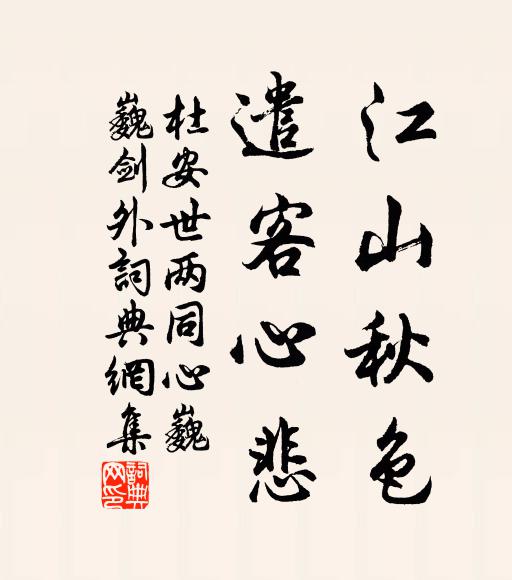 江山秋色
遣客心悲
杜安世两同心巍
巍剑外詞典網集
詞典網印